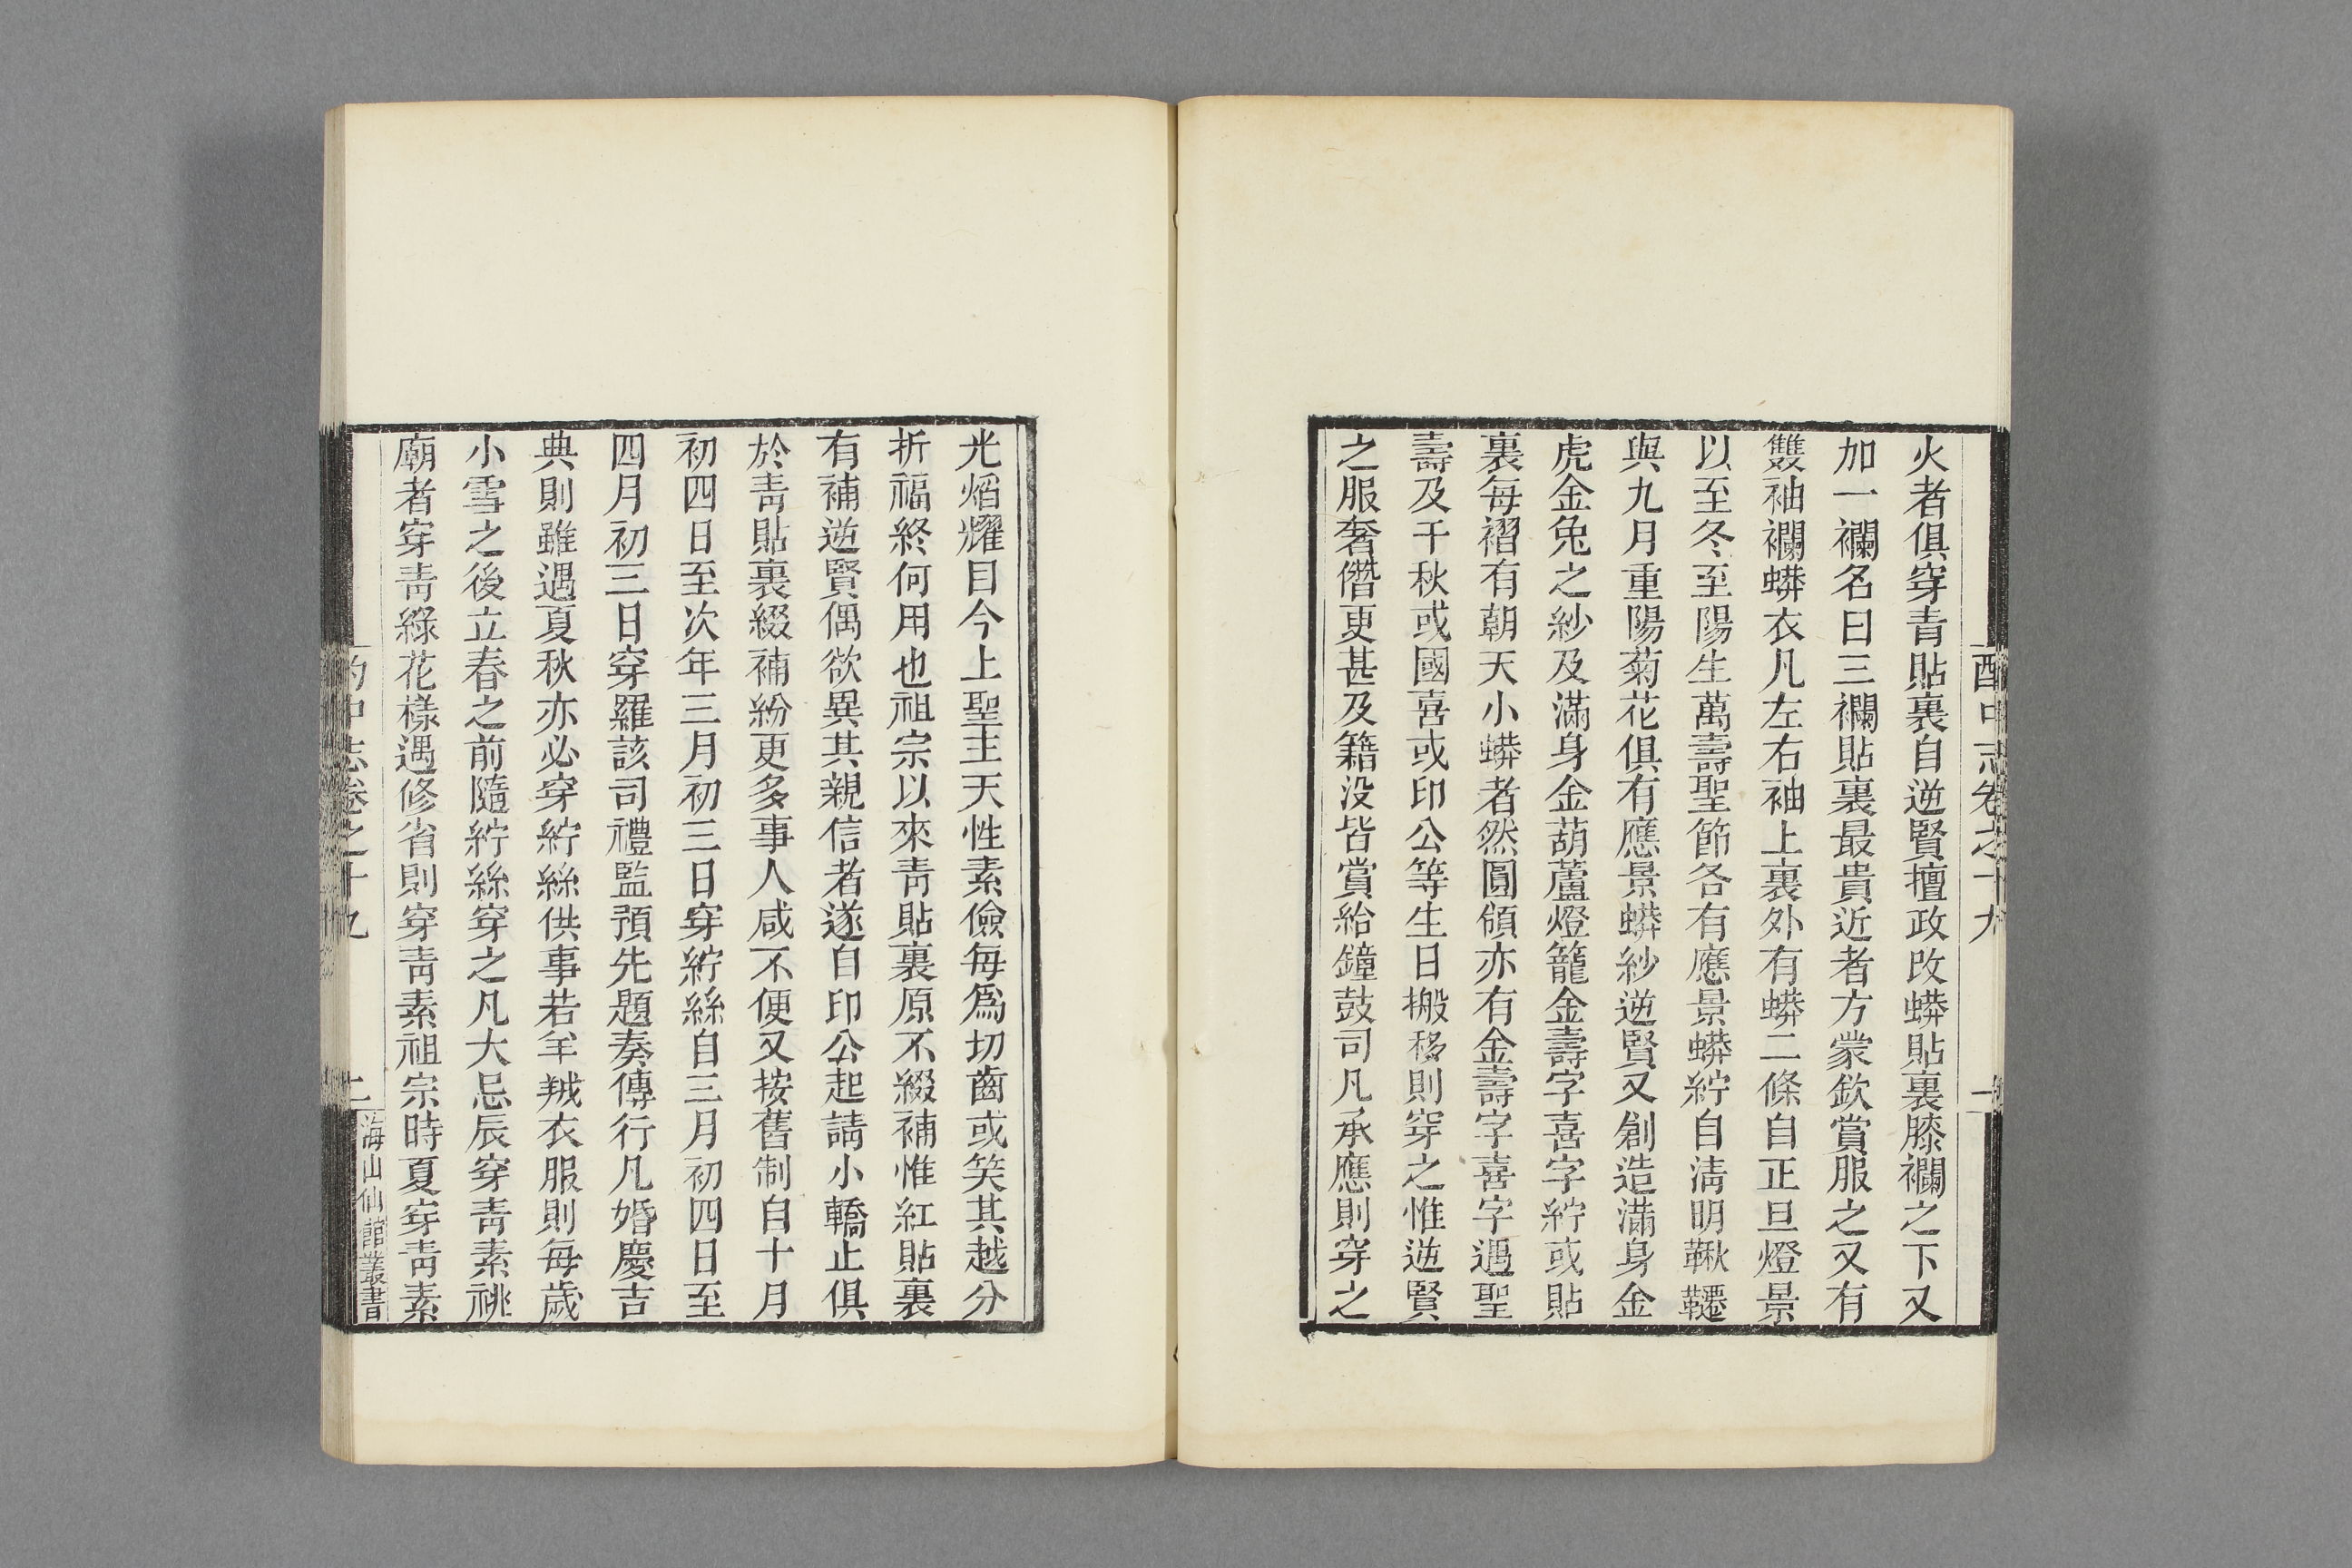 酌中志卷之十九
一
火者俱穿青貼裏自逆賢擅政改蟒貼裏膝襴之下又
加一襴名曰三襴貼裏最貴近者方蒙欽賞服之又有
雙袖襴蟒衣凡左右袖上裏外有蟒二條自正旦燈景
以至冬至陽生萬壽聖節各有應景蟒紵自淸明鞦韆
與九月重陽菊花俱有應景蟒紗逆賢又創造滿身金
虎金兔之紗及滿身金葫蘆燈籠金壽字喜字紵或貼
裏每褶有朝天小蟒者然圓領亦有金壽字喜字遇聖
壽及千秋或國喜或印公等生日搬移則穿之惟逆賢
之服奢僭更甚及籍没皆賞給鐘鼓司凡承應則穿之
光焰耀目今上聖主天性素儉每爲切齒或笑其越分
折福終何用也祖宗以來靑貼裏原不綴補惟紅貼裏
有補逆賢偶欲異其親信者遂自印公起請小轎止俱
於靑貼裏綴補紛更多事人咸不便又按舊制自十月
初四日至次年三月初三日穿紵絲自三月初四日至
四月初三日穿羅該司禮監預先題奏傳行凡婚慶吉
典則雖遇夏秋亦必穿紵絲供事若羊羢衣服則每歲
小雪之後立春之前隨紵絲穿之凡大忌辰穿靑素祧
廟者穿靑綠花樣遇修省則穿靑素祖宗時夏穿靑素
酌中志卷之十九
二
海山仙館叢書